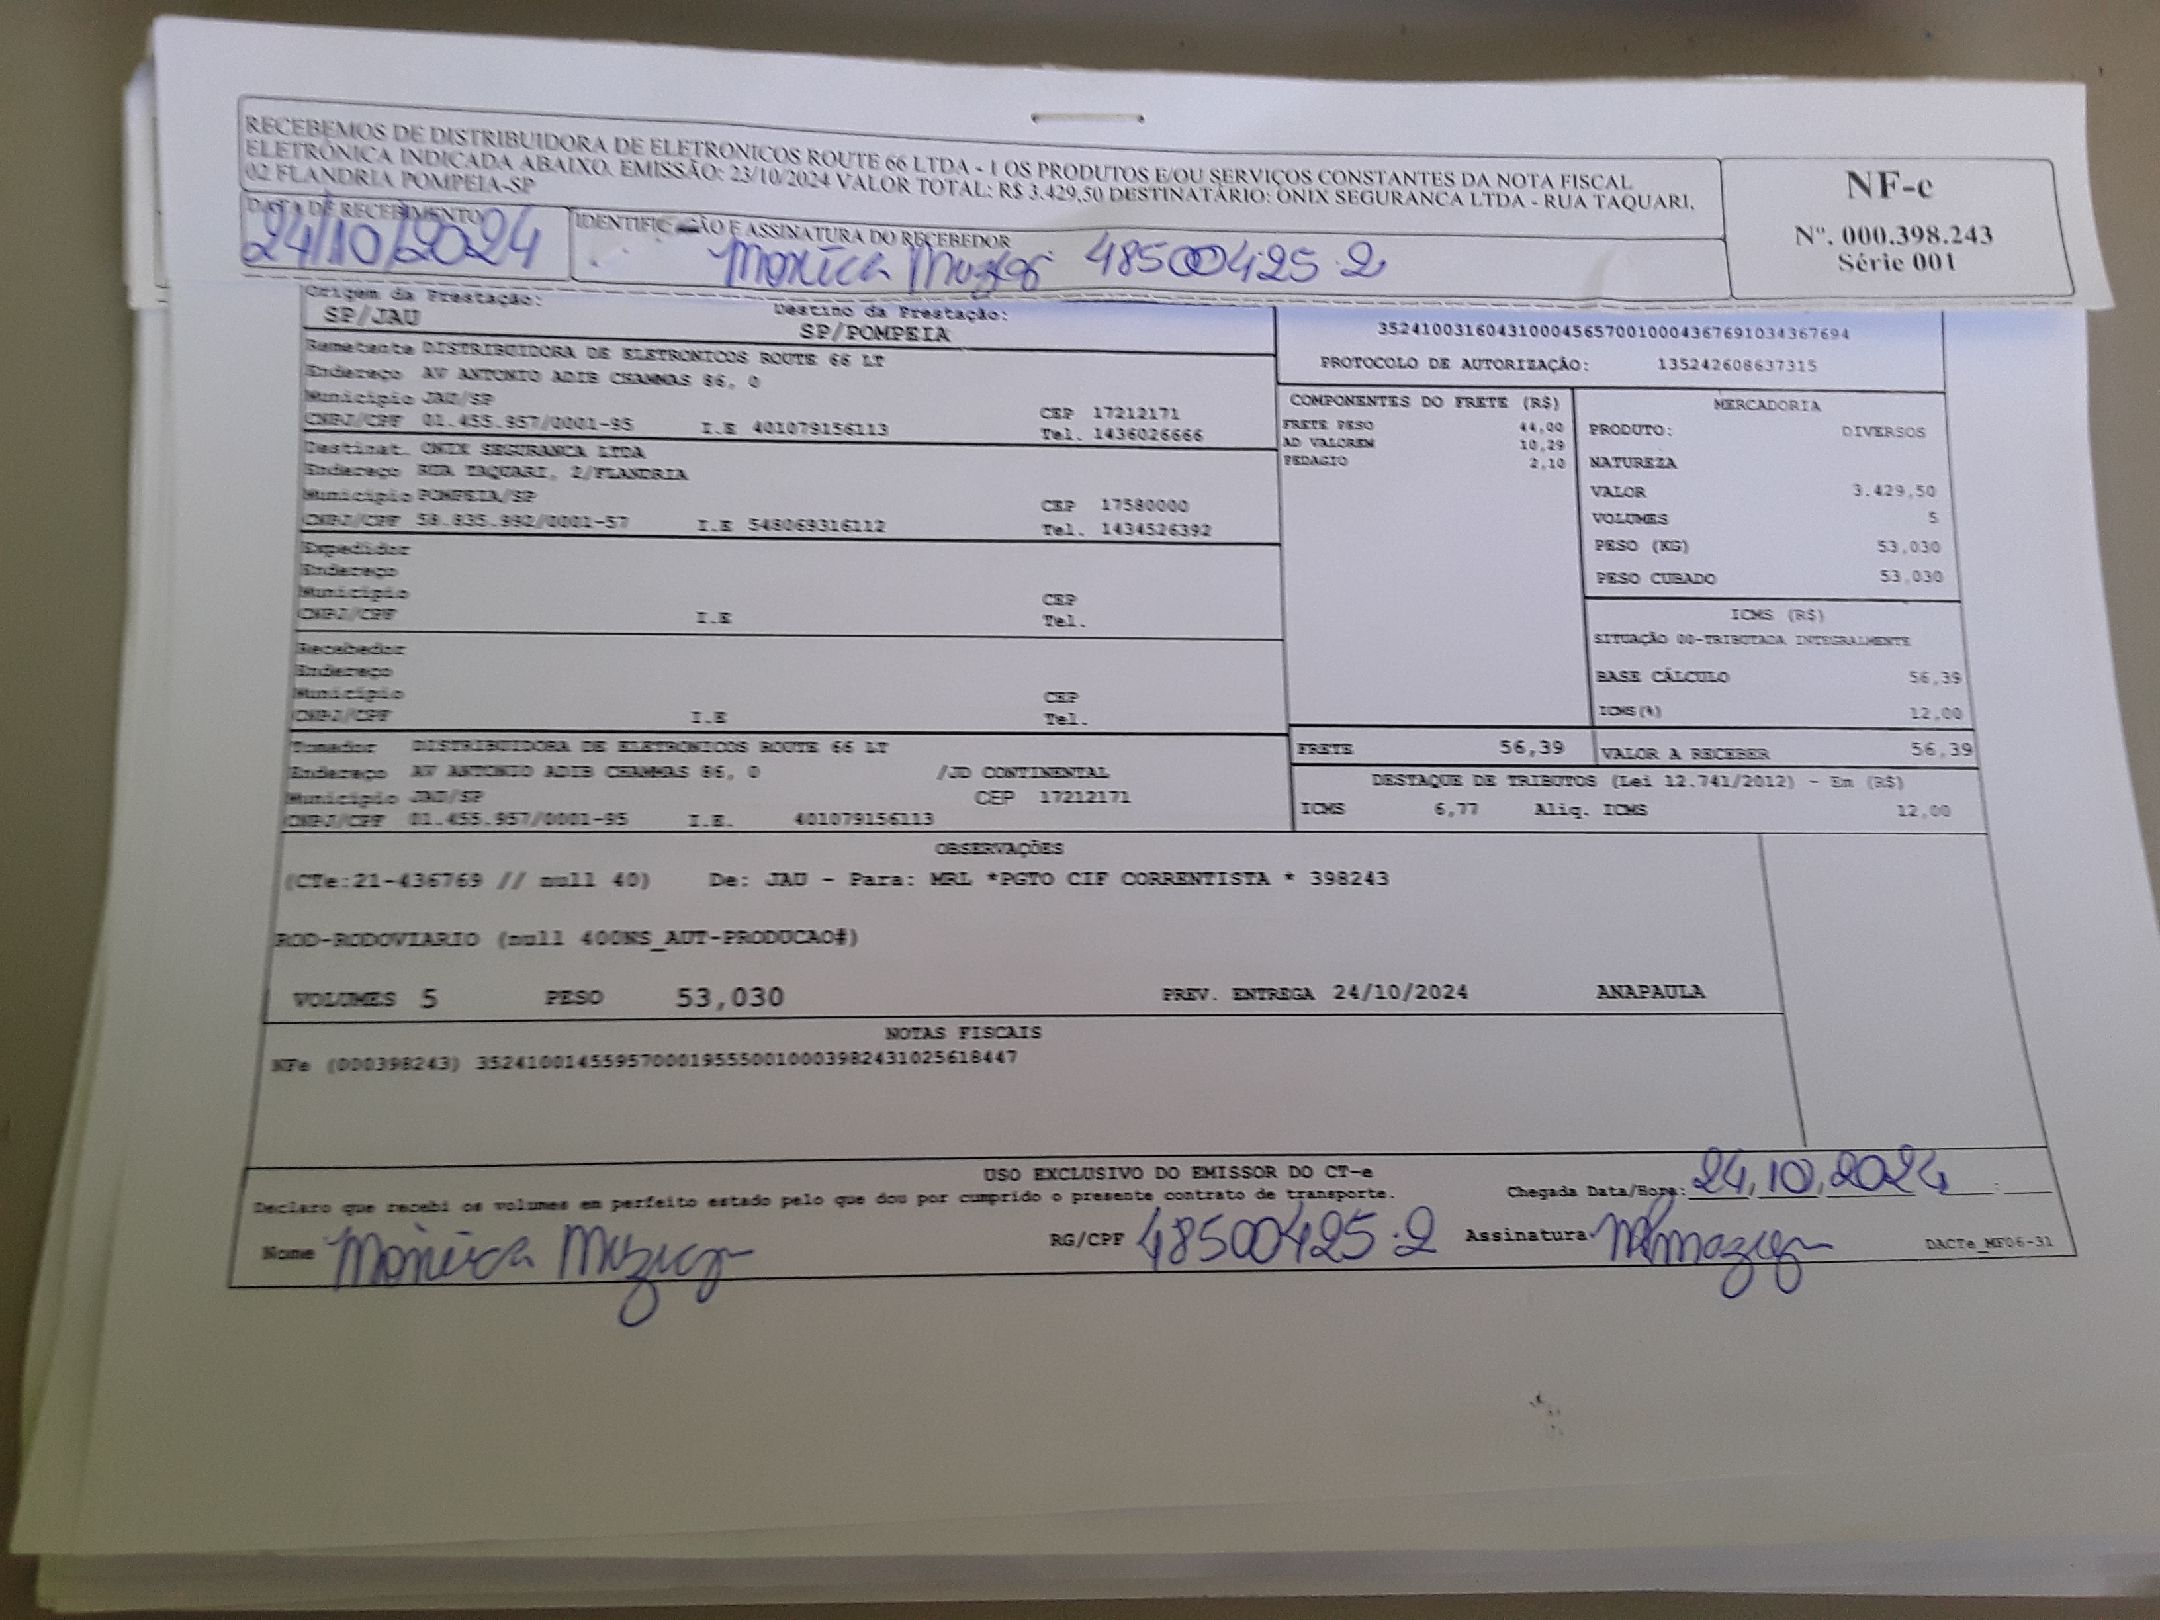 RECEBEMOS DE DISTRIBUIDORA DE ELETRONICOS ROUTE 66 LTDA - 1 OS PRODUTOS E/OU SERVIÇOS CONSTANTES DA NOTA FISCAL
ELETRÔNICA INDICADA ABAIXO. EMISSÃO: 23/10/2024 VALOR TOTAL: R$ 3.429,50 DESTINATÁRIO: ONIX SEGURANCA LTDA - RUA TAQUARI,
02 FLANDRIA POMPEIA-SP
NF-e
Nº. 000.398.243
Série 001
DATA DE RECEBIMENTO
24/10/2024
IDENTIFICAÇÃO E ASSINATURA DO RECEBEDOR
Monica 48500425-2
Origem da Prestação:
SP/JAU
Destino da Prestação:
SP/POMPEIA
35241003160431000456570010004367691034367694
PROTOCOLO DE AUTORIZAÇÃO: 135242608637315
Remetente DISTRIBUIDORA DE ELETRONICOS ROUTE 66 LT
Endereço AV ANTONIO ADIB CHAMMAS 86, 0
Município JAU/SP CEP 17212171
CNPJ/CPF 01.455.957/0001-95 I.E 401079156113 Tel. 1436026666
Destinat. ONIX SEGURANCA LTDA
Endereço RUA TAQUARI, 2/FLANDRIA
Município POMPEIA/SP CEP 17580000
CNPJ/CPF 58.835.992/0001-57 I.E 548069316112 Tel. 1434526392
Expedidor
Endereço
Município CEP
CNPJ/CPF I.E Tel.
Recebedor
Endereço
Município CEP
CNPJ/CPF I.E Tel.
Tomador DISTRIBUIDORA DE ELETRONICOS ROUTE 66 LT
Endereço AV ANTONIO ADIB CHAMMAS 86, 0 /JD CONTINENTAL
Município JAU/SP CEP 17212171
CNPJ/CPF 01.455.957/0001-95 I.E. 401079156113
COMPONENTES DO FRETE (R$)
FRETE PESO 44,00
AD VALOREM 10,29
PEDAGIO 2,10
MERCADORIA
PRODUTO: DIVERSOS
NATUREZA
VALOR 3.429,50
VOLUMES 5
PESO (KG) 53,030
PESO CUBADO 53,030
ICMS (R$)
SITUAÇÃO 00-TRIBUTADA INTEGRALMENTE
BASE CÁLCULO 56,39
ICMS(%) 12,00
FRETE 56,39
VALOR A RECEBER 56,39
DESTAQUE DE TRIBUTOS (Lei 12.741/2012) - Em (R$)
ICMS 6,77 Aliq. ICMS 12,00
OBSERVAÇÕES
(CTe:21-436769 // null 40) De: JAU - Para: MRL *PGTO CIF CORRENTISTA * 398243
ROD-RODOVIARIO (null 400NS_AUT-PRODUCAO#)
VOLUMES 5 PESO 53,030 PREV. ENTREGA 24/10/2024 ANAPAULA
NOTAS FISCAIS
NFe (000398243) 35241001455957000195550010003982431025618447
USO EXCLUSIVO DO EMISSOR DO CT-e
Declaro que recebi os volumes em perfeito estado pelo que dou por cumprido o presente contrato de transporte.
Chegada Data/Hora: 24.10.2024 :
Nome Monica
RG/CPF 48500425-2
Assinatura
DACTe_MF06-31